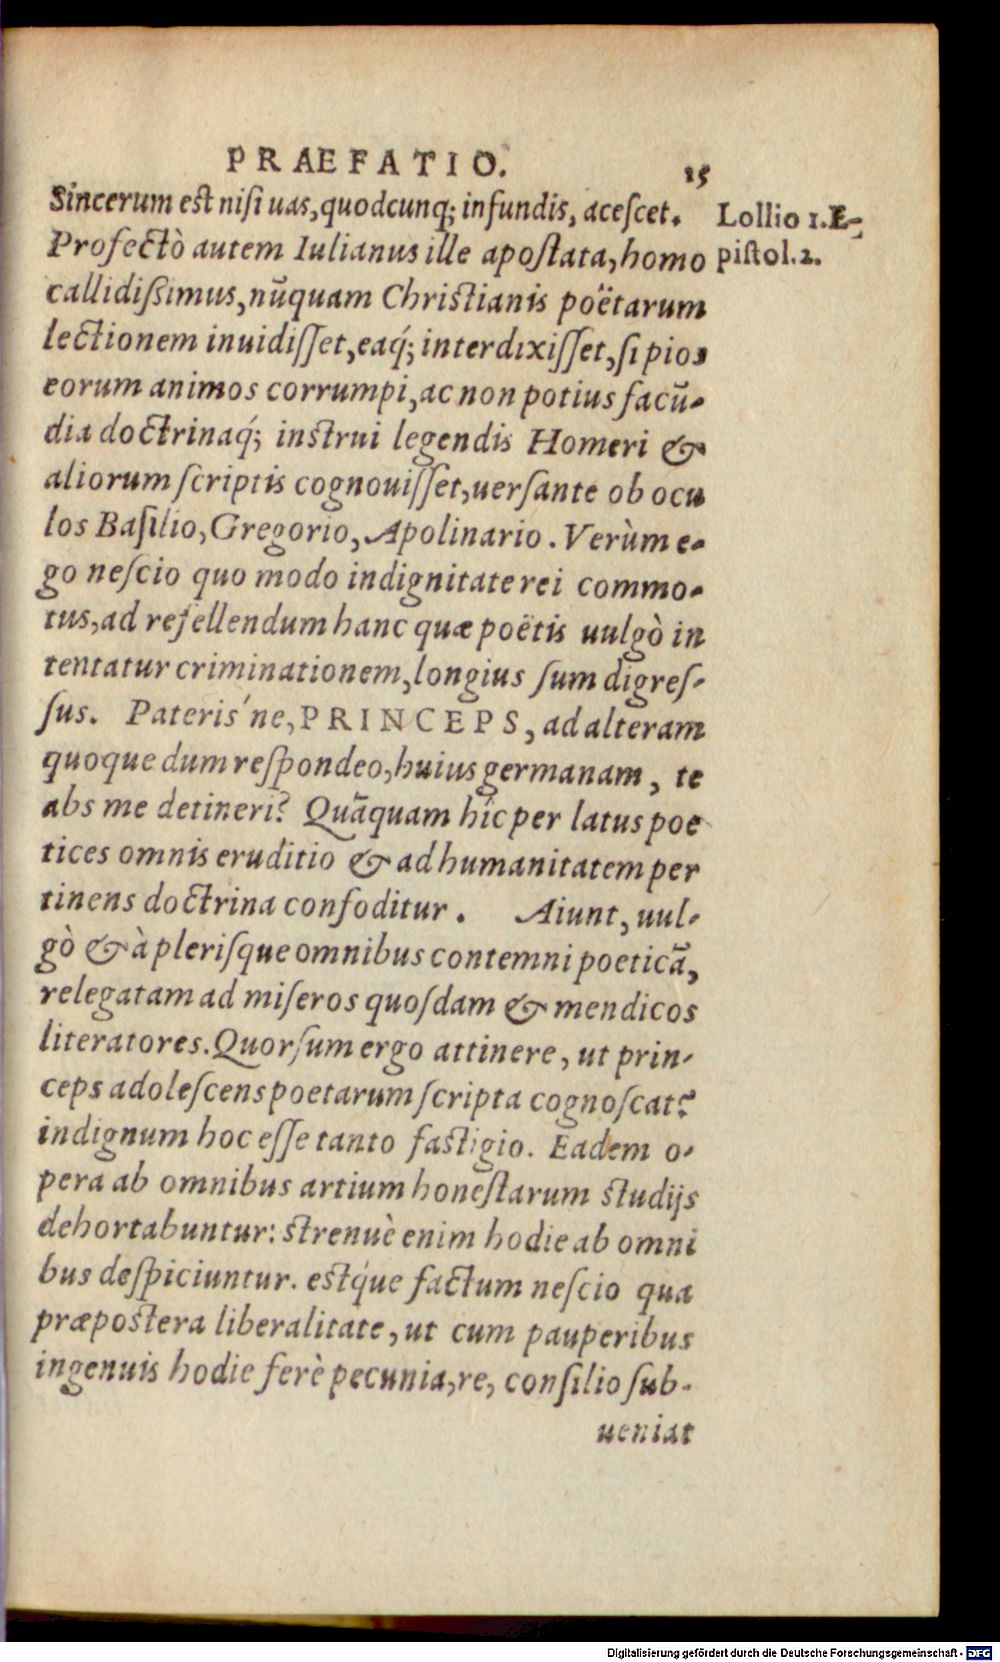 PRAEFATIO. 15
Sincerum est nisi uas, quodcunq; infundis, acescet.
Lollio 1. E-
pistol. 2.
Profectò autem Iulianus ille apostata, homo
callidißimus, nūquam Christianis poëtarum
lectionem inuidisset, eaq́; interdixisset, si pios
eorum animos corrumpi, ac non potius facū-
dia doctrinaq́; instrui legendis Homeri &
aliorum scriptis cognouisset, uersante ob ocu
los Basilio, Gregorio, Apolinario. Verùm e-
go nescio quo modo indignitate rei commo-
tus, ad refellendum hanc quæ poëtis uulgò in
tentatur criminationem, longius sum digres-
sus. Pateris'ne, PRINCEPS, ad alteram
quoque dum respondeo, huius germanam, te
abs me detineri? Quāquam hîc per latus poe
tices omnis eruditio & ad humanitatem per
tinens doctrina confoditur. Aiunt, uul-
gò & à plerisque omnibus contemni poeticā,
relegatam ad miseros quosdam & mendicos
literatores. Quorsum ergo attinere, ut prin-
ceps adolescens poetarum scripta cognoscat?
indignum hoc esse tanto fastigio. Eadem o-
pera ab omnibus artium honestarum studijs
dehortabuntur: strenuè enim hodie ab omni
bus despiciuntur. estq́ue factum nescio qua
præpostera liberalitate, ut cum pauperibus
ingenuis hodie ferè pecunia, re, consilio sub-
ueniat
Digitalisierung gefördert durch die Deutsche Forschungsgemeinschaft - DFG